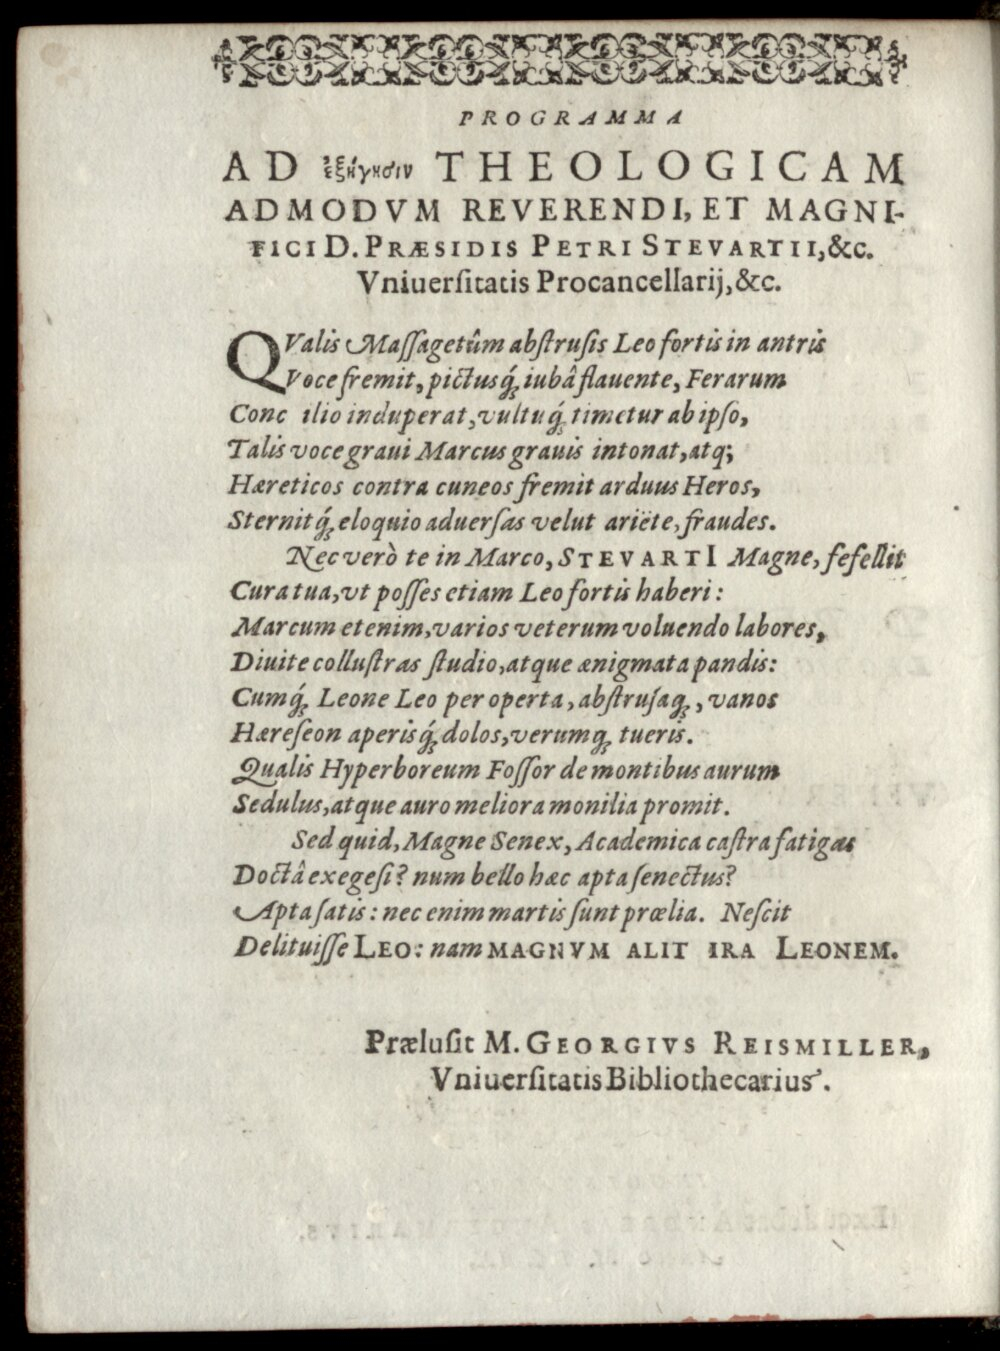 PROGRAMMA
AD ἐξήγησιν THEOLOGICAM
ADMODVM REVERENDI, ET MAGNI-
FICI D. PRÆSIDIS PETRI STEVARTII, &c.
Vniuerſitatis Procancellarij, &c.
QValis Maſſagetûm abſtruſis Leo fortis in antris
Voce fremit, pictusq́; iubâ flauente, Ferarum
Conc ilio induperat, vultuq́; timetur ab ipſo,
Talis voce graui Marcus grauis intonat, atq;
Hæreticos contra cuneos fremit arduus Heros,
Sternitq́; eloquio aduerſas velut ariëte, fraudes.
Nec verò te in Marco, STEVARTI Magne, fefellit
Cura tua, vt poſſes etiam Leo fortis haberi:
Marcum etenim, varios veterum voluendo labores,
Diuite colluſtras ſtudio, atque ænigmata pandis:
Cumq́; Leone Leo per operta, abſtruſaq;, vanos
Hæreſeon aperisq́; dolos, verumq; tueris.
Qualis Hyperboreum Foſſor de montibus aurum
Sedulus, atque auro meliora monilia promit.
Sed quid, Magne Senex, Academica caſtra fatigas
Doctâ exegeſi? num bello hæc apta ſenectus?
Apta ſatis: nec enim martis ſunt prœlia. Neſcit
Delituiſſe LEO: nam MAGNVM ALIT IRA LEONEM.
Præluſit M. GEORGIVS REISMILLER,
Vniuerſitatis Bibliothecarius.